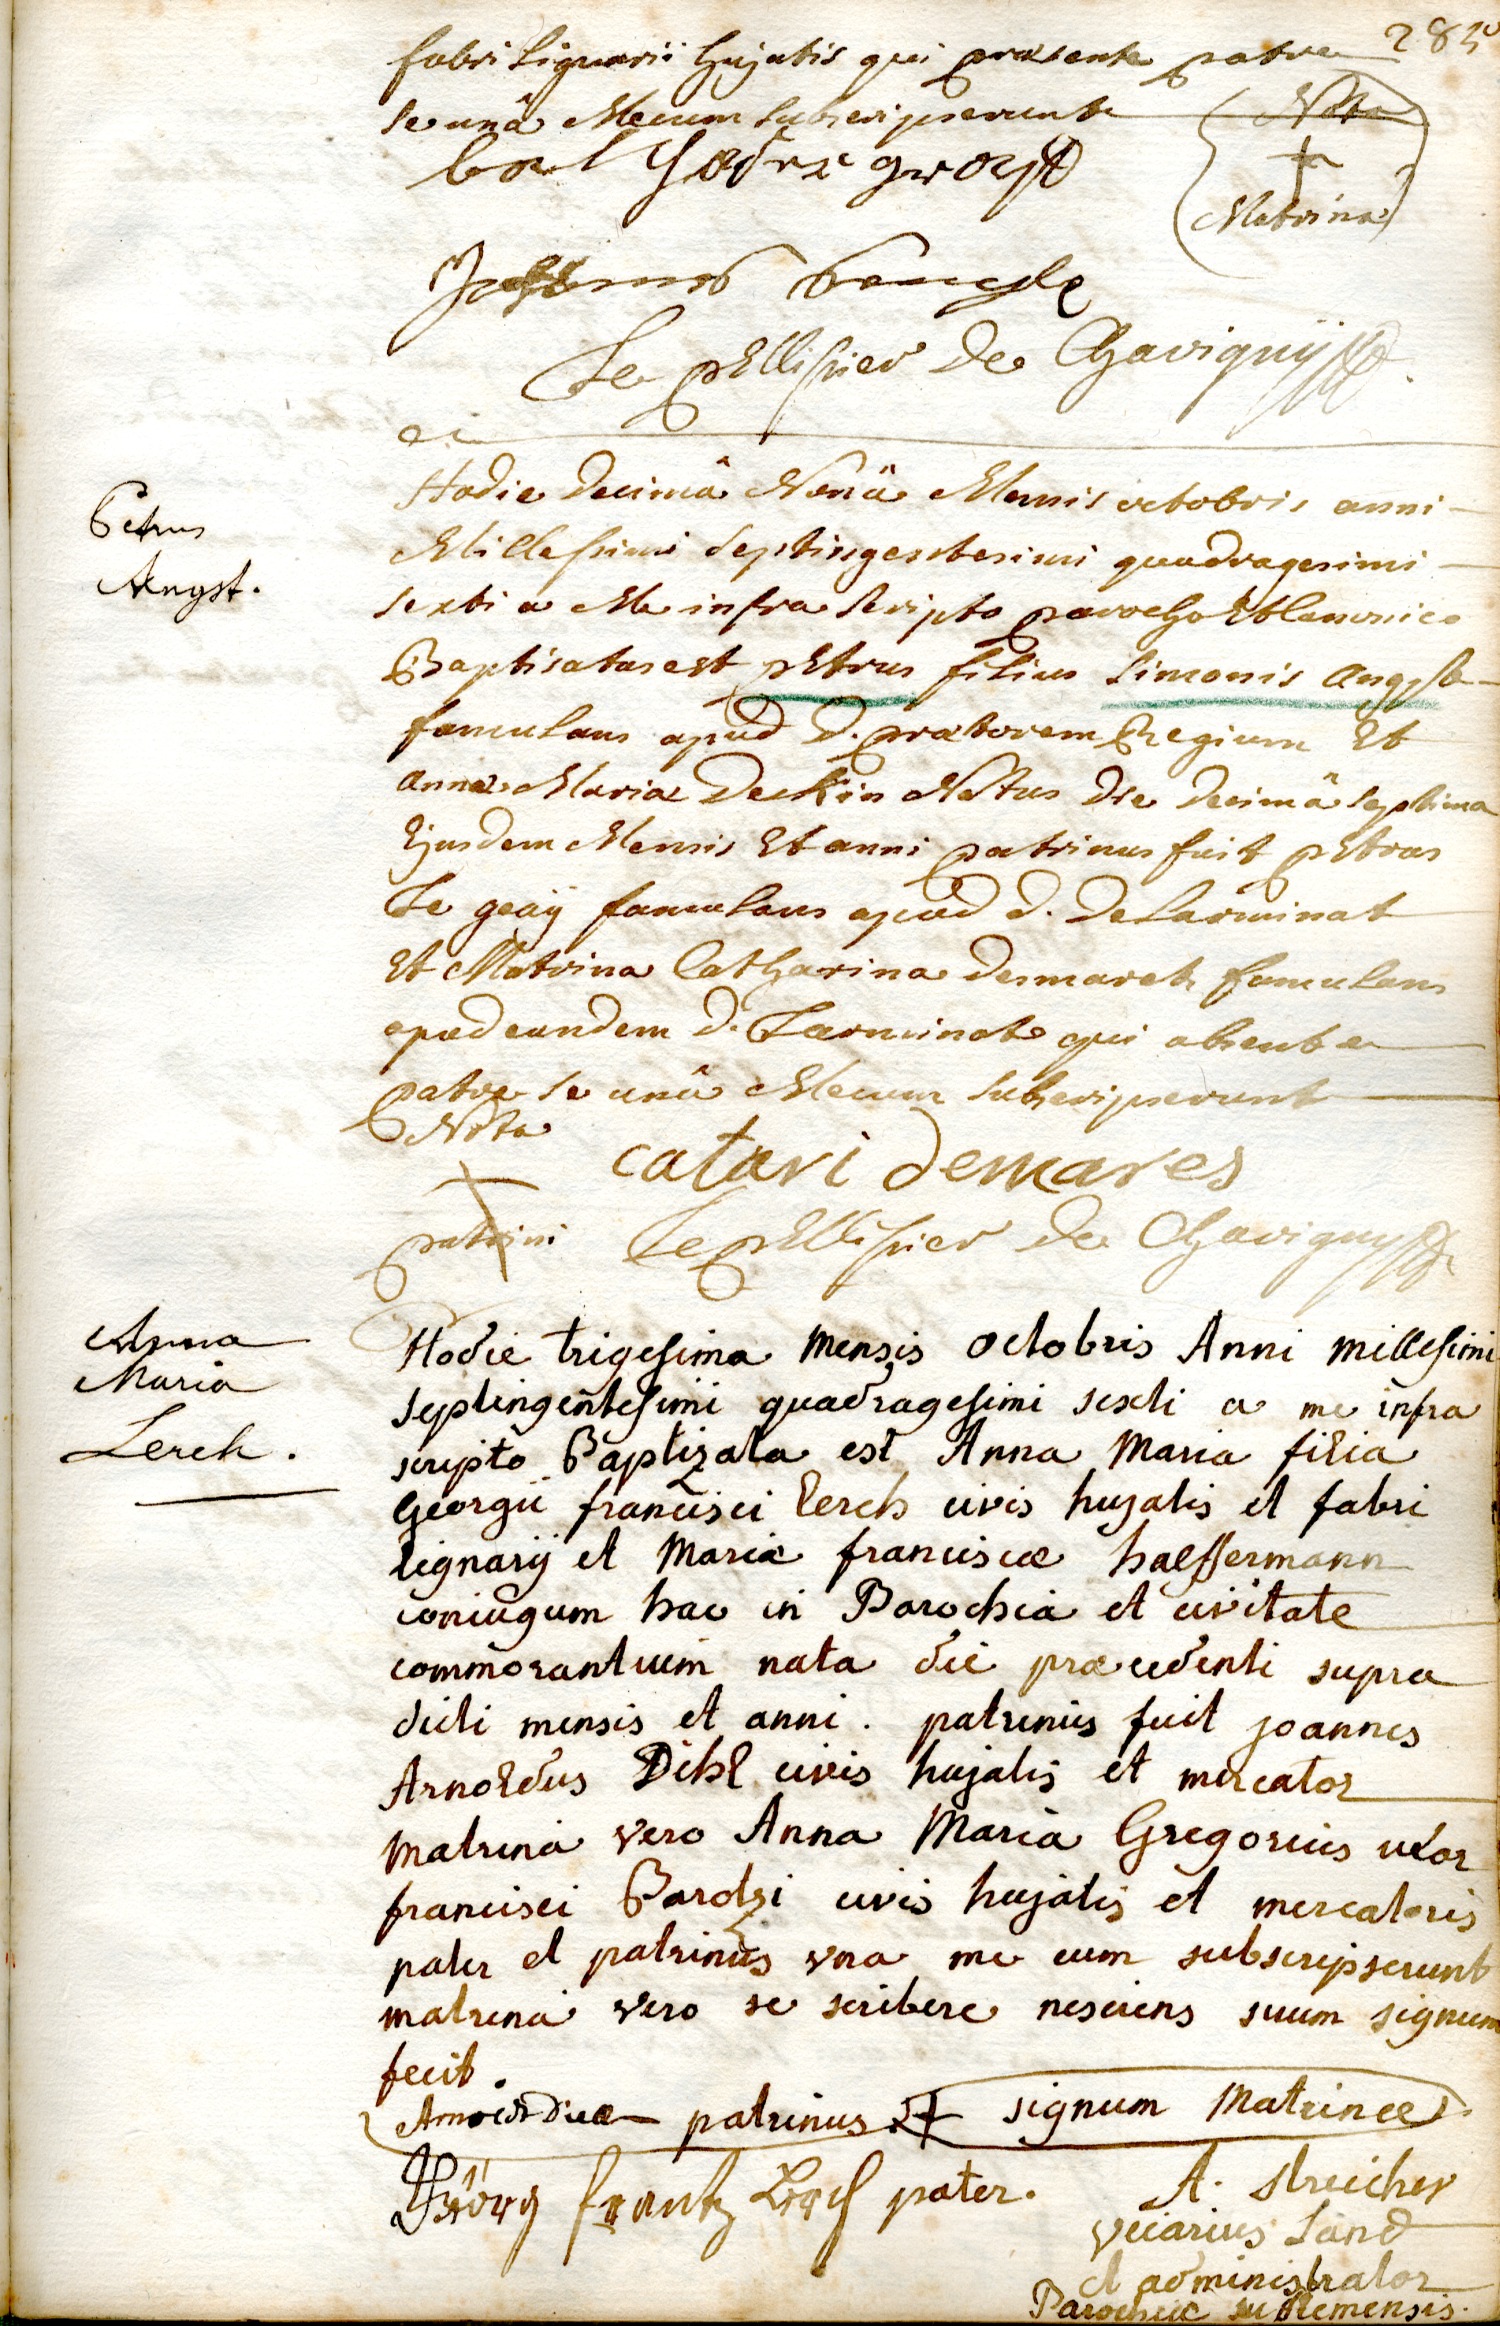 285
fabri Lignarii hujatis qui praesente patre
se unâ Mecum subscripserunt
Nota
+
Matrina
Johannes
Le pEllissier De Chavignÿ
Petrus
Angst.
Hodie Decimâ Nonâ Mensis octobris anni
Millessimi Septingentesimi quadragesimi
sexti a Me infra scripto parocho Et Canonico
Baptisatus est pEtrus filius Simonis Angst
famulans apud D. praetorem Regium Et
annae Mariae Deckin Natus die decimâ septima
Ejusdem Mensis Et anni patrinus fuit pEtrus
Le geaÿ famulans apud d. De Larminat
Et Matrina Catharina Desmaret famulans
apud eundem D. Larminat qui absente
patre se unâ Mecum subscripserunt
Nota
+
patrini
catari demares
Le pEllissier De Chavigny
Anna
Maria
Lerch.
Hodie trigesima Mensis octobris Anni millesimi
septingentesimi quadragesimi sexti a me infra
scripto Baptizata est Anna Maria filia
Georgii francisci Lerch civis hujatis et fabri
lignarij et Mariae franciscae haeffermann
coniugum hac in Parochia et civitate
commorantium nata die praecedenti supra
dicti mensis et anni. patrinus fuit joannes
Arnoldus Dihl civis hujatis et mercator
Matrina vero Anna Maria Gregorius uxor
francisci Barozi civis hujatis et mercatoris
pater et patrinus vna me cum subscripserunt
matrina vero se scribere nesciens suum signum
fecit.
patrinus + signum Matrinae
Görg frantz Lerch pater.
A. Streicher
vicarius Land
et administrator
Parochiae